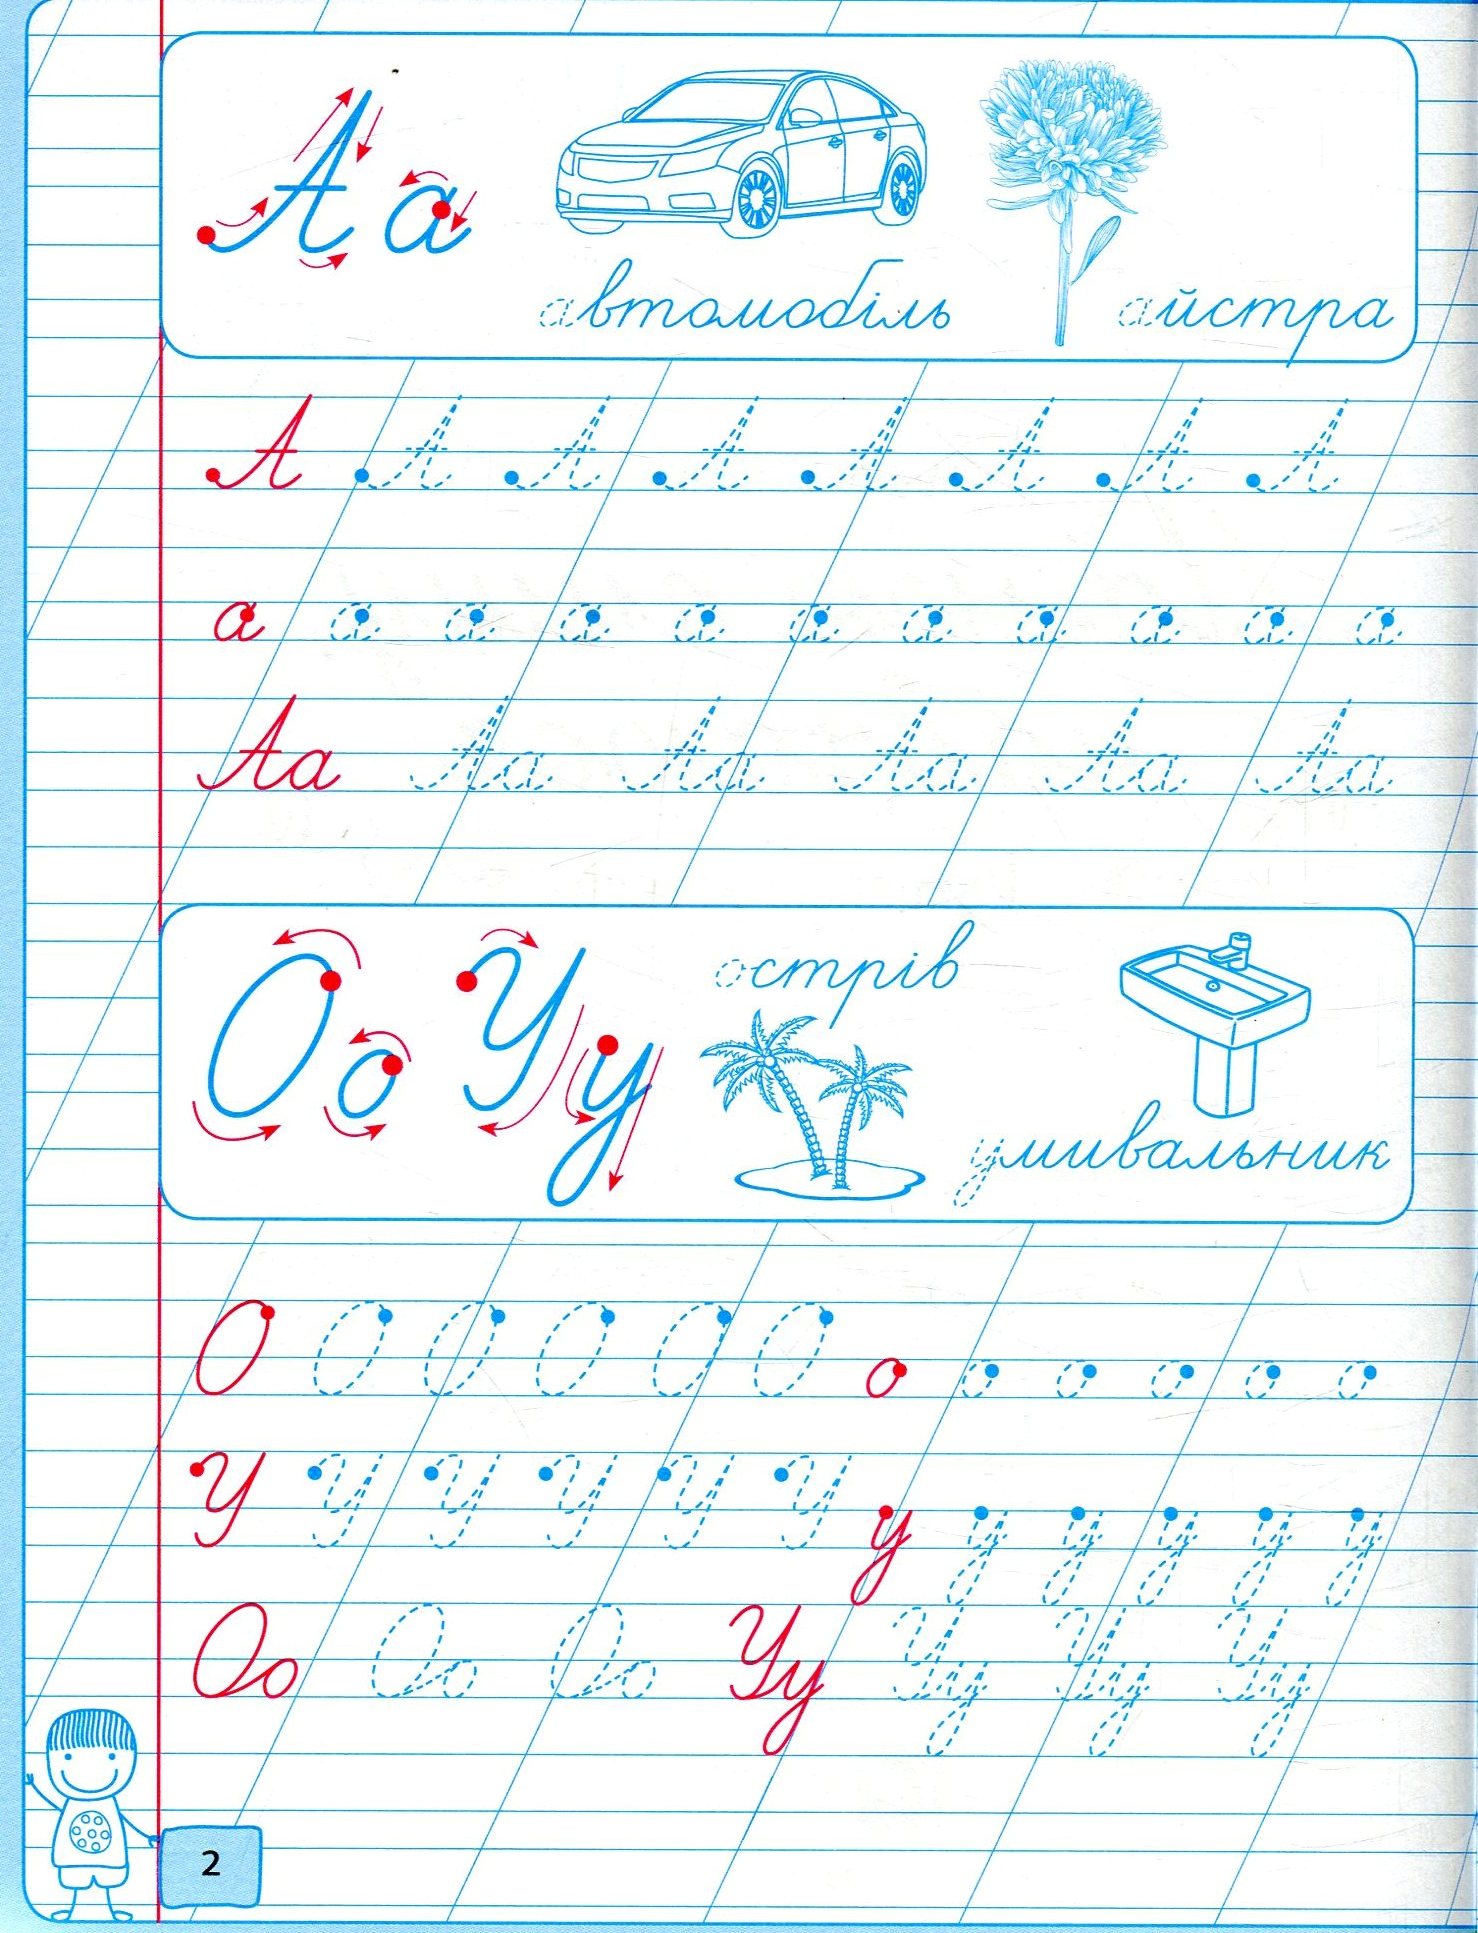 А а
автомобіль айстра
А А А А А А А А
а а а а а а а а а а а
Аа Аа Аа Аа Аа Аа
О о У у острів
умивальник
О О О О О О о о о о о о
У У У У У У у у у у у у
Оо Оо Оо Уу Уу Уу Уу
2